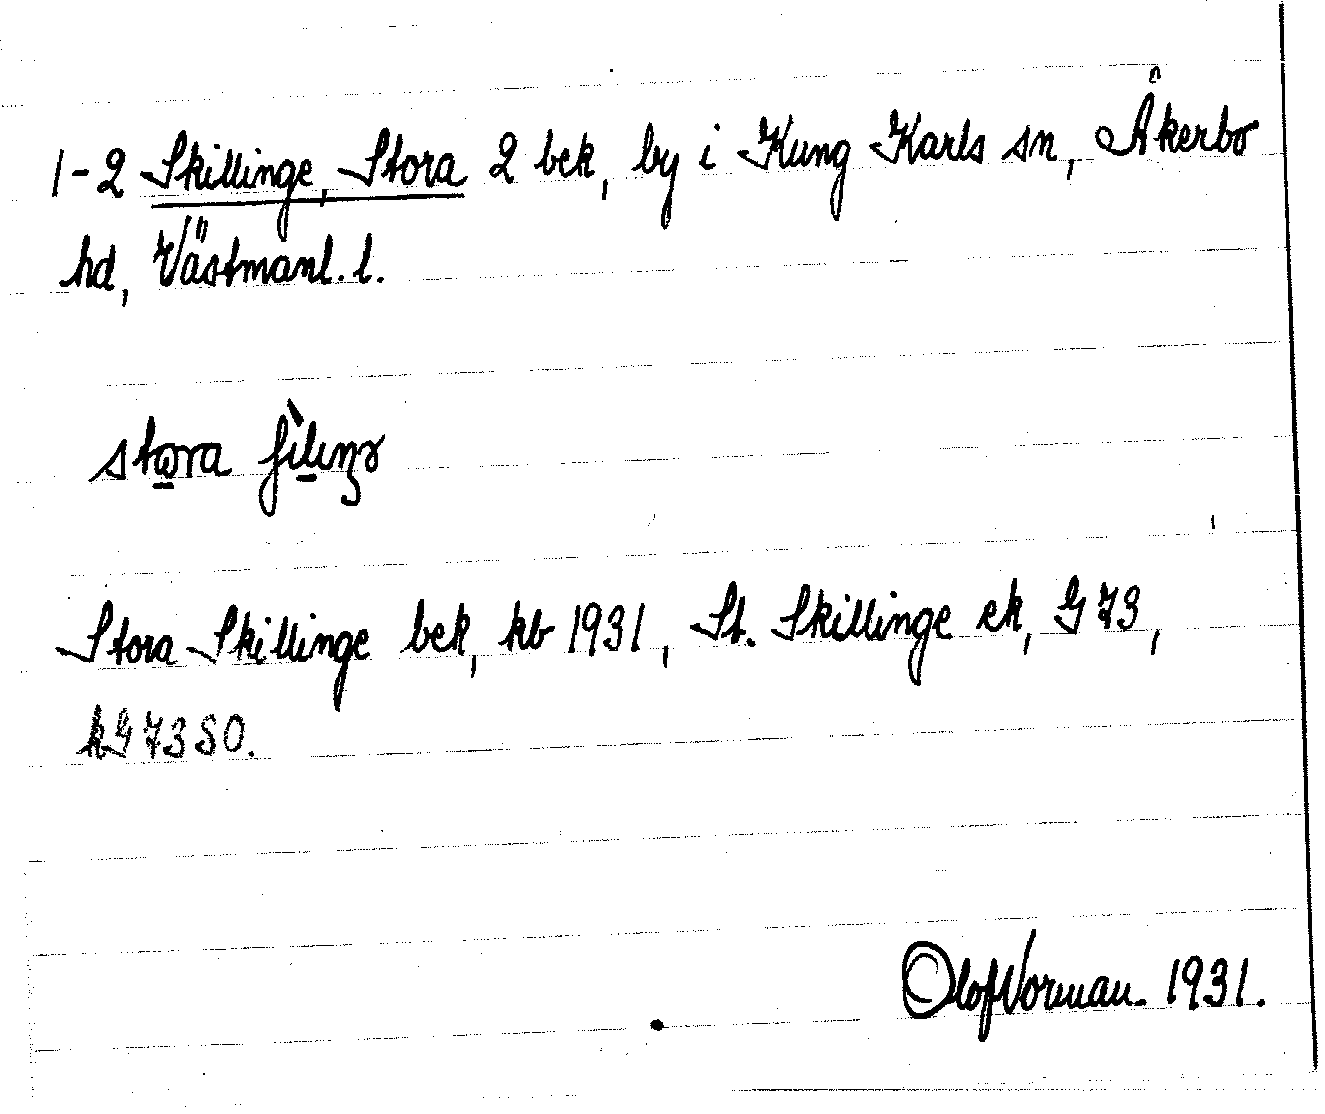 1-2 Skillinge, Stora 2 bek, by i Kung Karls sn, Åkerbo
hd, Västmanl. l.
stora
Stora Skillinge bek, kb 1931, St. Skillinge ek, G 73,
kG 73 SO.
Olof Norman. 1931.